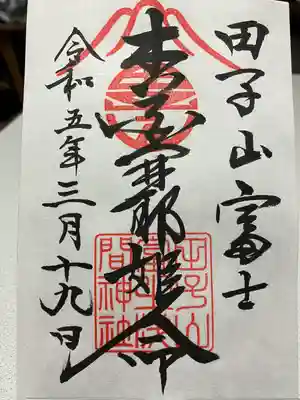 田子山富士
木花開耶姫命
令和五年三月十九日
田子山
間神社